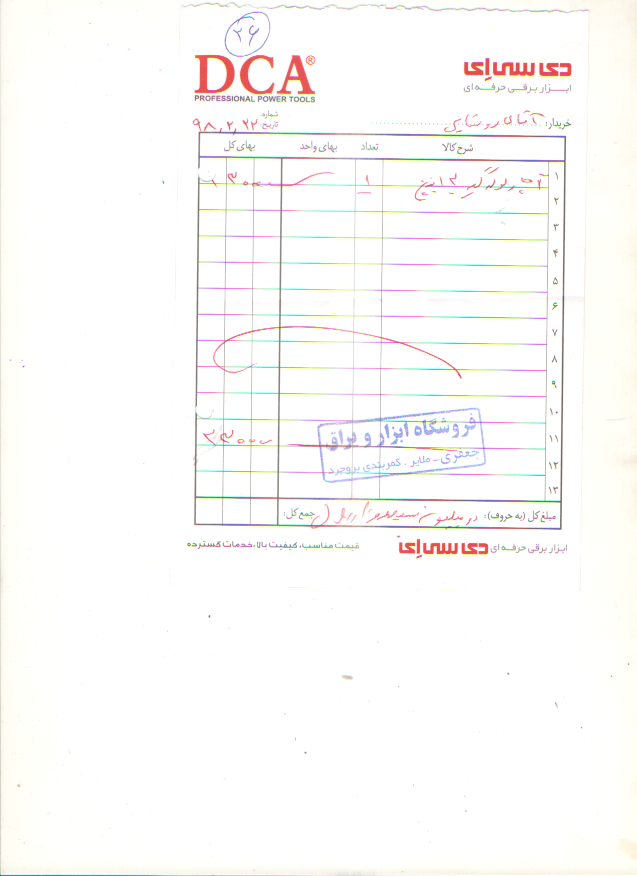 ۲۶
DCA®
PROFESSIONAL POWER TOOLS
دی سی اِی
ابـزار برقـی حرفـه ای
شماره:
تاریخ: ۹۸,۲,۲۲
خریدار: آقای روستایی
شرح کالا تعداد بهای واحد بهای کل
۱ ۱
۲
۳
۴
۵
۶
۷
۸
۹
۱۰
۱۱
۱۲
۱۳
فروشگاه ابزار و یراق
جعفری - ملایر - کمربندی بروجرد
مبلغ کل (به حروف): دو میلیون سیصد هزار ریال جمع کل:
ابزار برقی حرفـه ای دی سی اِی قیمت مناسب، کیفیت بالا، خدمات گسترده